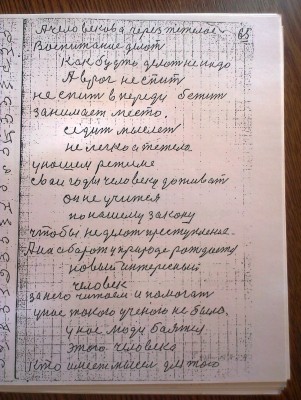 65
А человекова через тетелое
Воспитание делот
Как будть делот не надо
А враг не спит
не спит впереди бежит
занимает место.
седит мыслет
не легко а тетела
унашим режиме
сваи годы человеку доживат
он не учится
по нашему закону
чтобы не делот преступление.
А на абарот уприроде рождает
новый интересный
человек
за него читаем и помогат
унас токого ученого не было.
унас люди баятся
этого человека
кто имеет мысел для того